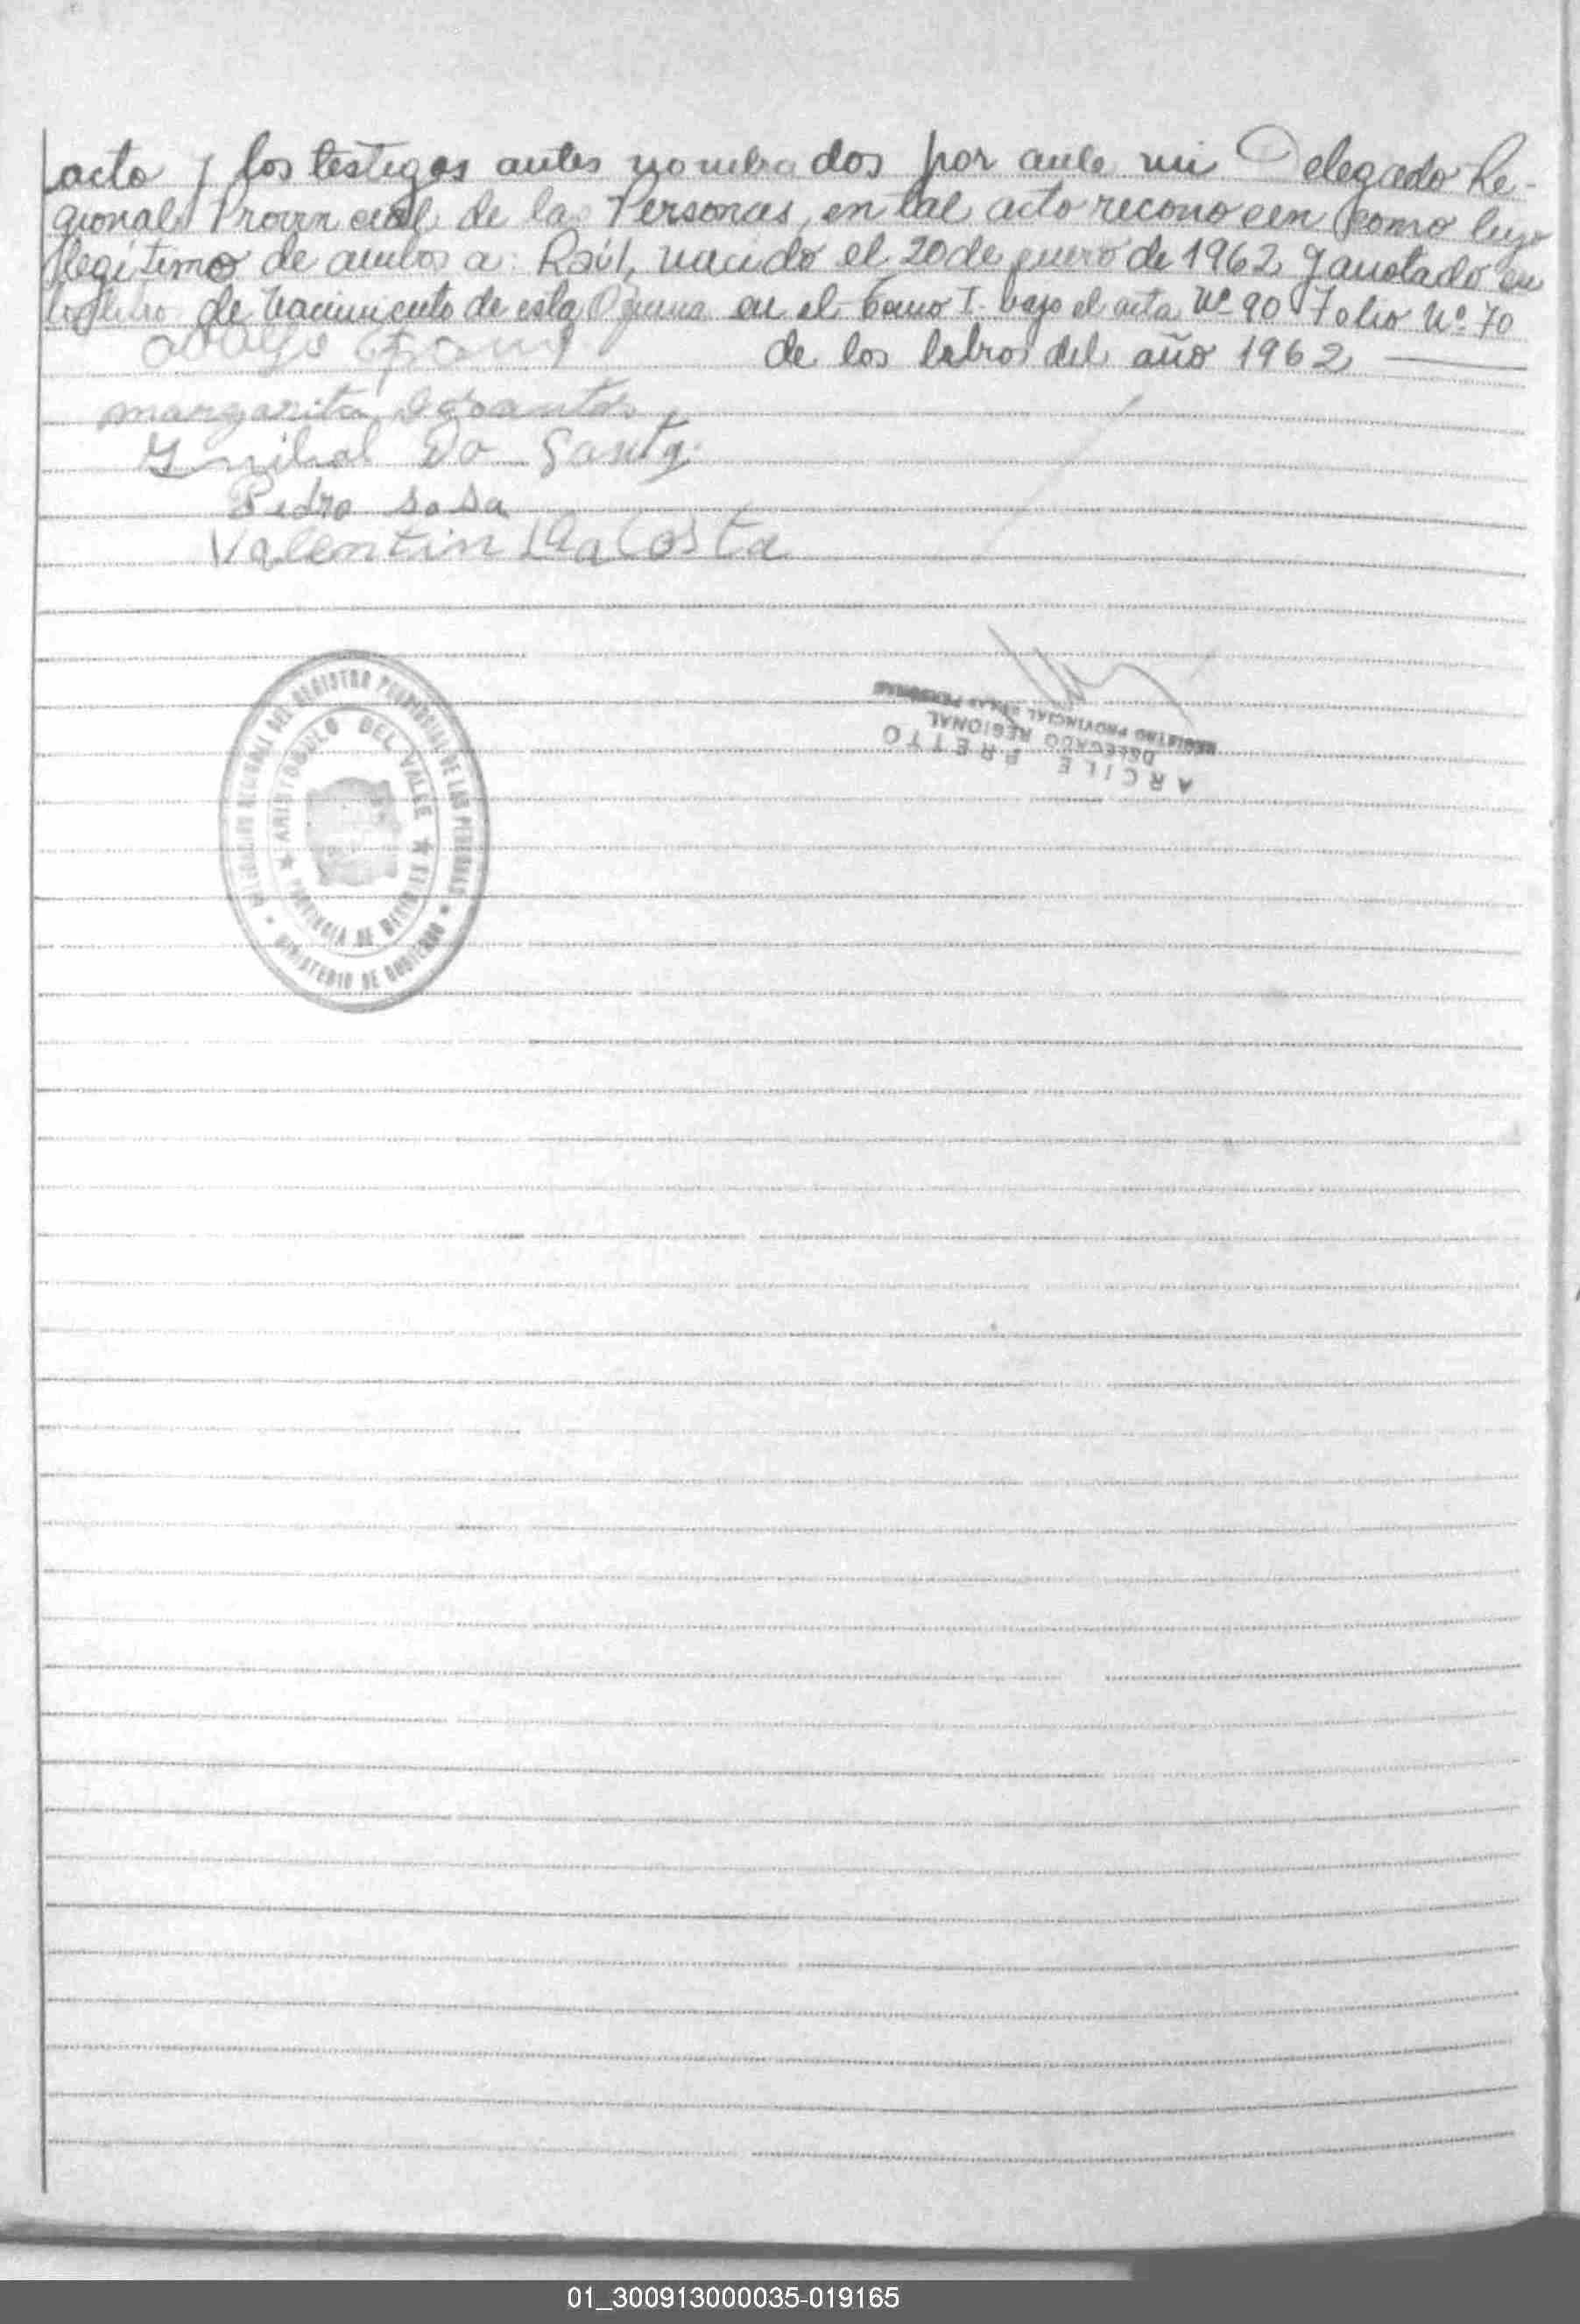 acto y los testigos antes nombrados por ante mi Delegado Re-
gional Provincial de las Personas, en tal acto reconocen como hijo
legitimo de ambos a: Raúl, nacido el 20 de enero de 1962 y anotado en
los libro de Nacimiento de esta Oficina en el Tomo I- bajo el acta Nº 90 Folio Nº 70
de los libros del año 1962
margarita
Do Santo
Pedro sosa
Valentin Da Costa
DELEGACION REGIONAL DEL REGISTRO PROVINCIAL DE LAS PERSONAS
★ MINISTERIO DE GOBIERNO ★
ARISTOBULO DEL VALLE
★ PROVINCIA DE MISIONES ★
ARCILE PREITO
DELEGADO REGIONAL
REGISTRO PROVINCIAL DE LAS PERSONAS
01_300913000035-019165